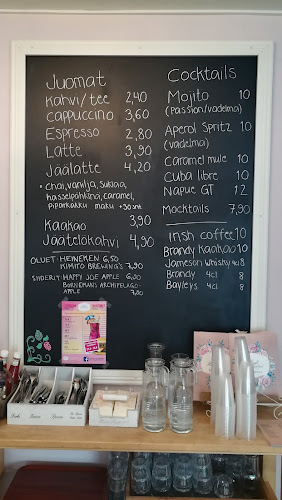 Juomat
Kahvi/tee 2,40
Cappuccino 3,60
Espresso 2,80
Latte 3,90
Jäälatte 4,20
• chai, vanilja, suklaa,
hasselpähkinä, caramel,
piparkakku maku +50 snt
Kaakao 3,90
Jäätelökahvi 4,90
OLUET: HEINEKEN 6,50
KIMITO BREWING'S 7,90
SIIDERIT: HAPPY JOE APPLE 6,50
BORNEMANS ARCHIPELAGO-
APPLE 7,90
Cocktails
Mojito 10
(passion/vadelma)
Aperol Spritz 10
(vadelma)
Caramel mule 10
Cuba libre 10
Napue GT 12
Mocktails 7,90
Irish coffee 10
Brandy kaakao 10
Jameson whisky 4cl 8
Brandy 4cl 8
Bayleys 4cl 8